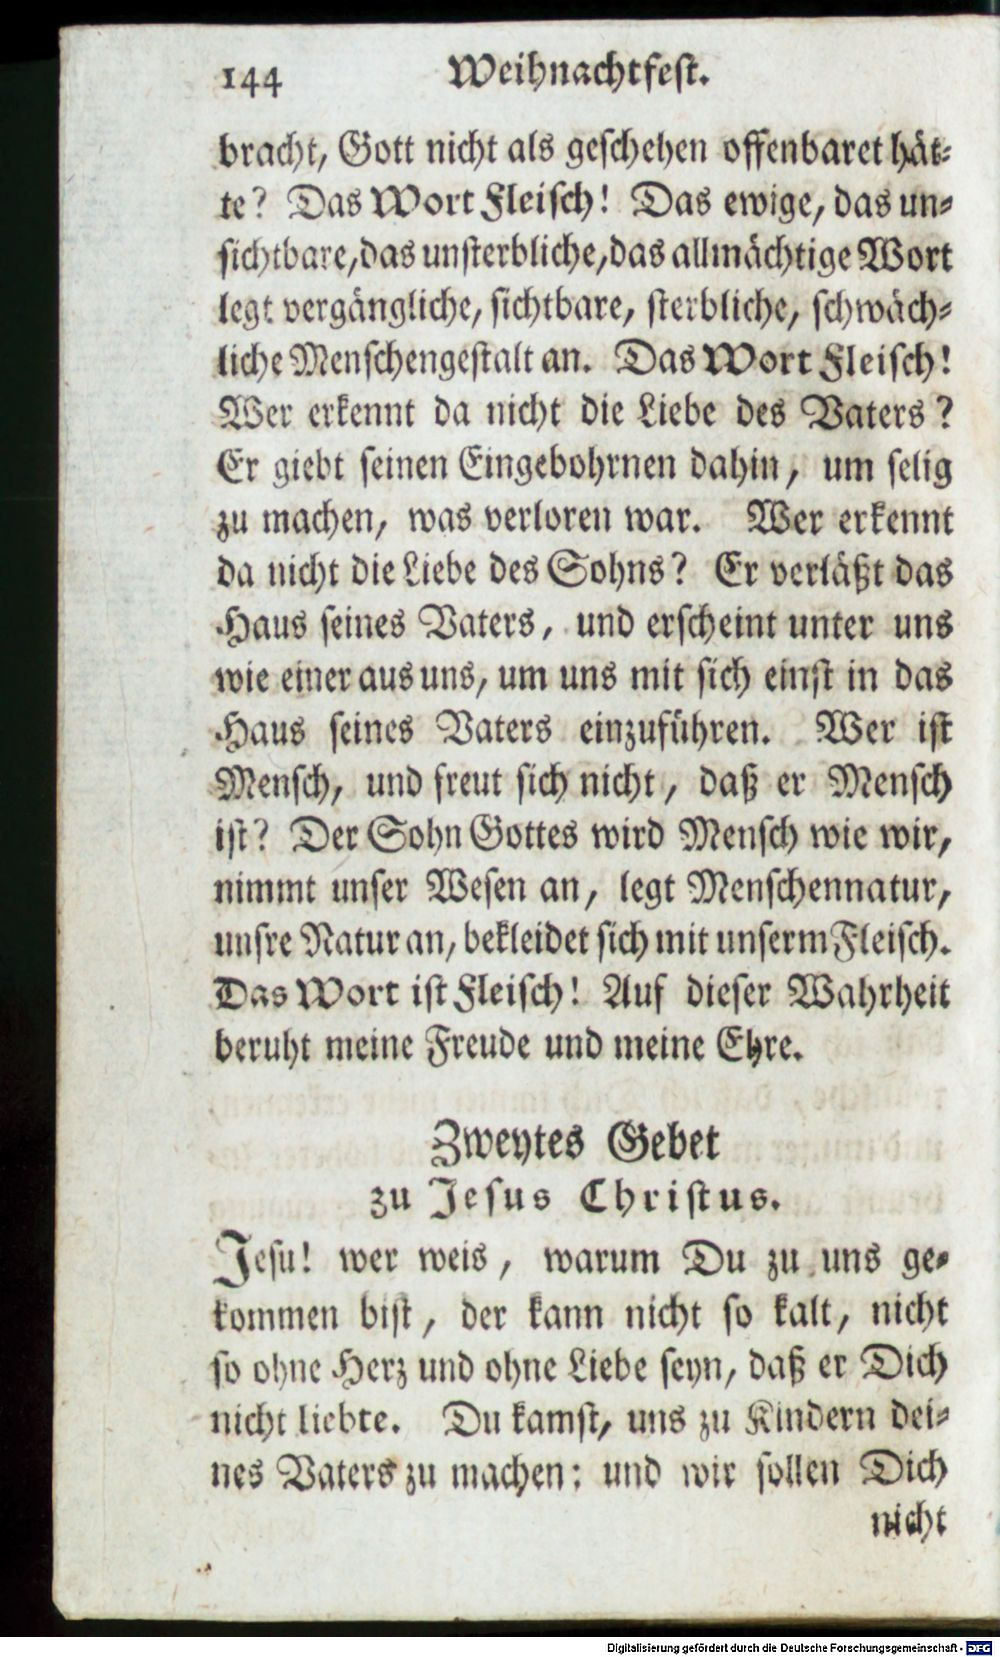 144 Weihnachtfest.
bracht, Gott nicht als geschehen offenbaret hät-
te? Das Wort Fleisch! Das ewige, das un-
sichtbare, das unsterbliche, das allmächtige Wort
legt vergängliche, sichtbare, sterbliche, schwäch-
liche Menschengestalt an. Das Wort Fleisch!
Wer erkennt da nicht die Liebe des Vaters?
Er giebt seinen Eingebohrnen dahin, um selig
zu machen, was verloren war. Wer erkennt
da nicht die Liebe des Sohns? Er verläßt das
Haus seines Vaters, und erscheint unter uns
wie einer aus uns, um uns mit sich einst in das
Haus seines Vaters einzuführen. Wer ist
Mensch, und freut sich nicht, daß er Mensch
ist? Der Sohn Gottes wird Mensch wie wir,
nimmt unser Wesen an, legt Menschennatur,
unsre Natur an, bekleidet sich mit unserm Fleisch.
Das Wort ist Fleisch! Auf dieser Wahrheit
beruht meine Freude und meine Ehre.
Zweytes Gebet
zu Jesus Christus.
Jesu! wer weis, warum Du zu uns ge-
kommen bist, der kann nicht so kalt, nicht
so ohne Herz und ohne Liebe seyn, daß er Dich
nicht liebte. Du kamst, uns zu Kindern dei-
nes Vaters zu machen: und wir sollen Dich
nicht
Digitalisierung gefördert durch die Deutsche Forschungsgemeinschaft - DFG